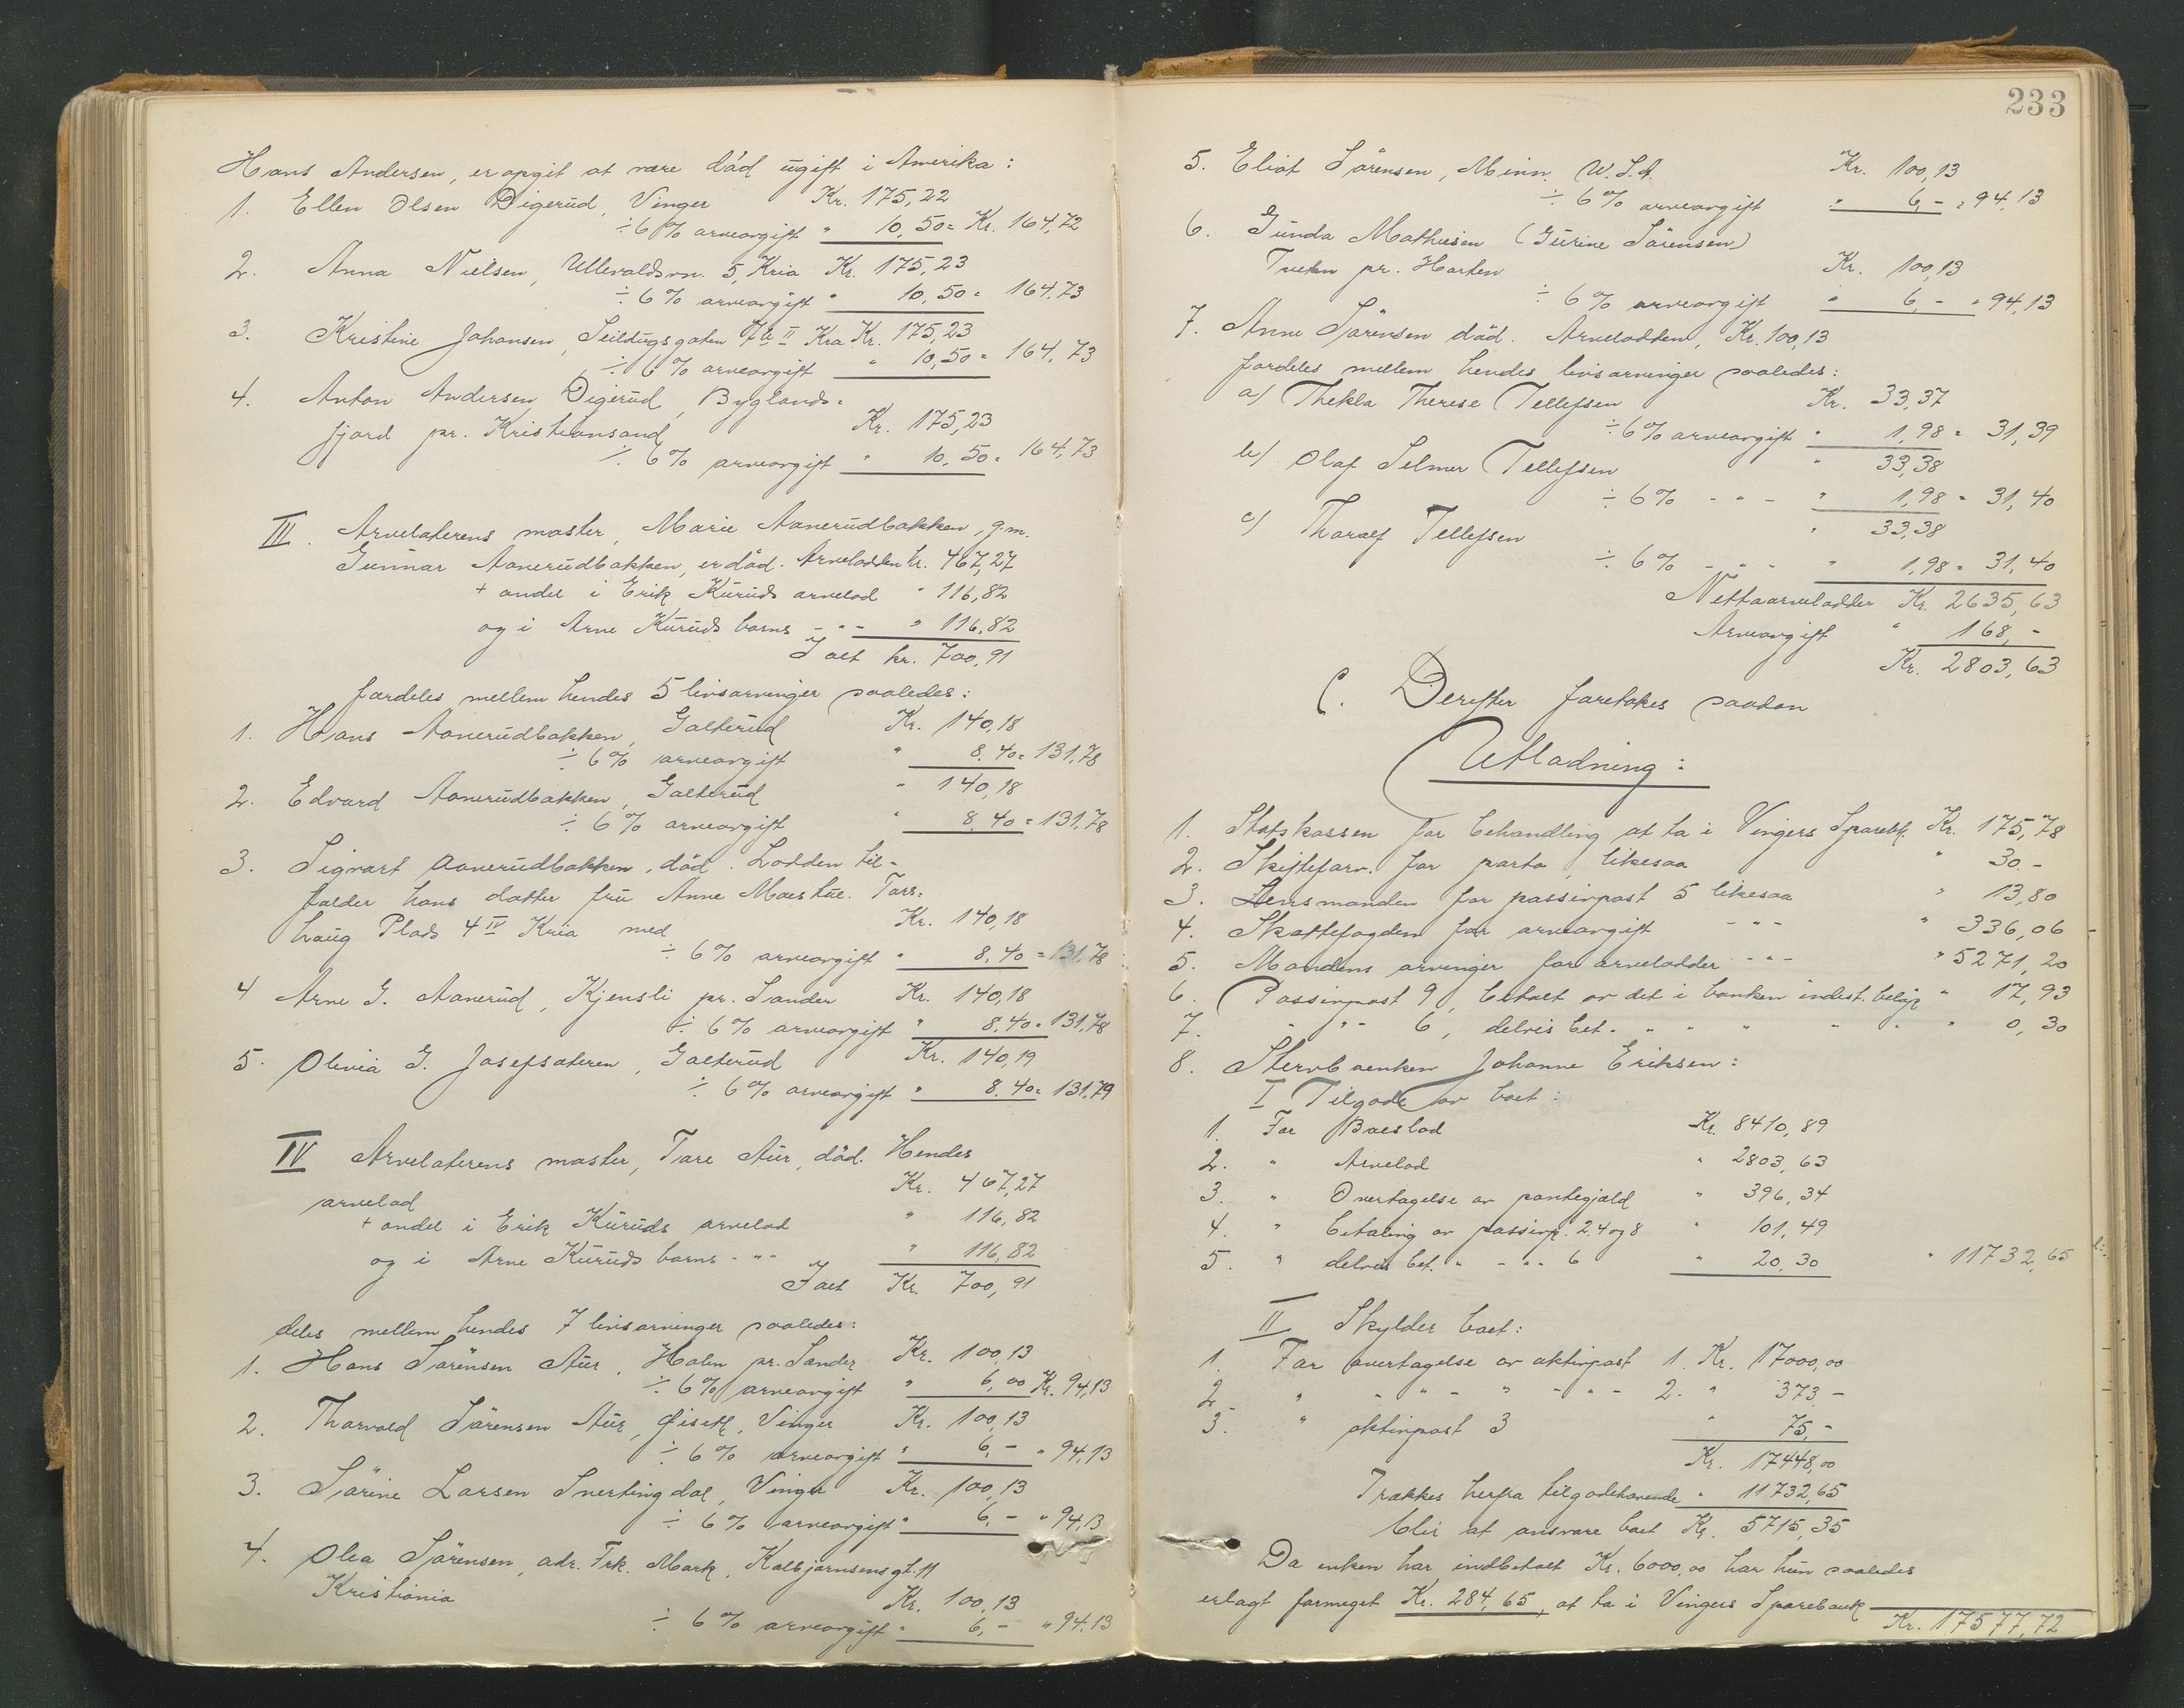 Hans Andersen, er opgit at være død ugift i Amerika:
1. Ellen Olsen Digerud, Vinger Kr. 175,22
÷ 6% arveavgift " 10,50 = Kr. 164,72
2. Anna Nielsen, Ullevaldsvn. 5, Kria Kr. 175,23
÷ 6% arveavgift " 10,50 = 164,73
3. Kristine Johansen, Seildugsgaten II Kra Kr. 175,23
÷ 6% arveavgift " 10,50 = 164,73
4. Anton Andersen Digerud, Byglands=
fjord pr. Kristiansand Kr. 175,23
÷ 6% arveavgift " 10,50 = 164,73
III. Arvelaterens moster, Marie Aanerudbakken, g.m.
Gunnar Aanerudbakken, er død. Arvelodden kr. 467,27
+ andel i Erik Kuruds arvelod " 116,82
og i Arne Kuruds barns - " - " 116,82
Ialt kr. 700,91
fordeles mellem hendes 5 livsarvinger saaledes:
1. Hans Aanerudbakken, Galterud Kr. 140,18
÷ 6% arveavgift " 8,40 = 131,78
2. Edvard Aanerudbakken, Galterud " 140,18
÷ 6% arveavgift " 8,40 = 131,78
3. Sigvart Aanerudbakken, død. Lodden til-
falder hans datter fru Anne Moeshue. Tors=
haug Plads 4 IV Kria med Kr. 140,18
÷ 6% arveavgift " 8,40 = 131,78
4 Arne G. Aanerud, Kjensli pr. Sander Kr. 140,18
÷ 6% arveavgift " 8,40 = 131,78
5. Olivia G. Josefsæteren, Galterud Kr. 140,19
÷ 6% arveavgift " 8,40 = 131,79
IV Arvelaterens moster, Tore Aur, død. Hendes
arvelod Kr. 467,27
+ andel i Erik Kuruds arvelod " 116,82
og i Arne Kuruds barns - " - " 116,82
Ialt Kr. 700,91
deles mellem hendes 7 livsarvinger saaledes:
1. Hans Sørensen Aur, Holm pr. Sander Kr. 100,13
÷ 6% arveavgift " 6,00 Kr. 94,13
2. Thorvald Sørensen Aur, Vinger Kr. 100,13
÷ 6% arveavgift " 6,- " 94,13
3. Sørine Larsen Snertingdal, Vinger Kr. 100,13
÷ 6% arveavgift " 6,- " 94,13
4. Olea Sørensen, adr. Frk. Mark, Kolbjørnsensgt. 11
Kristiania Kr. 100,13
÷ 6% arveavgift " 6,- " 94,13
233
5. Eliot Sørensen, Minn. U.S.A. Kr. 100,13
÷ 6% arveavgift " 6,- = 94,13
6. Gunda Mathisen (Gurine Sørensen)
pr. Horten Kr. 100,13
÷ 6% arveavgift " 6,- " 94,13
7. Anne Sørensen død. Arvelodden, Kr. 100,13
fordeles mellem hendes livsarvinger saaledes:
a) Thekla Therese Tellefsen Kr. 33,37
÷ 6% arveavgift " 1,98 = 31,39
b) Olaf Selmer Tellefsen " 33,38
÷ 6% - " - " 1,98 = 31,40
c) Thoralf Tellefsen " 33,38
÷ 6% - " - " 1,98 = 31,40
Nettoarvelodder Kr. 2635,63
Arveavgift " 168,-
Kr. 2803,63
C. Derefter foretokes saadan
Utlodning:
1. Statskassen for behandling at ta i Vingers Sparebk. Kr. 175,78
2. Skifteforv. for porto, likesaa " 30.-
3. Lensmanden for passivpost 5 likesaa " 13,80
4. Skattefogden for arveavgift - " - " 336,06
5. Mandens arvinger for arvelodder - " - " 5271,20
6. Passivpost 9, betalt av det i banken indest. beløp " 17,93
7. - " - 6, delvis bet. " " " - " " 0,30
8. Stervboenken Johanne Eriksen:
I Tilgode av boet:
1. For Boeslod Kr. 8410,89
2. " Arvelod " 2803,63
3. " Overtagelse av pantegjæld " 396,34
4. " betaling av passivp. 2.4 og 8 " 101,49
5. " delvis bet. " - " - 6 " 20,30 " 11732,65
II Skylder boet:
1. For overtagelse av aktivpost 1. Kr. 17000,00
2. " - " - " - " - 2. " 373 -
3. " aktivpost 3 " 75,-
Kr. 17448,00
Trækkes herfra tilgodehavende " 11732,65
blir at ansvare boet Kr. 5715,35
Da enken har indbetalt Kr. 6000,00 har hun saaledes
erlagt formeget Kr. 284,65, at ta i Vingers Sparebank
Kr. 17577,72